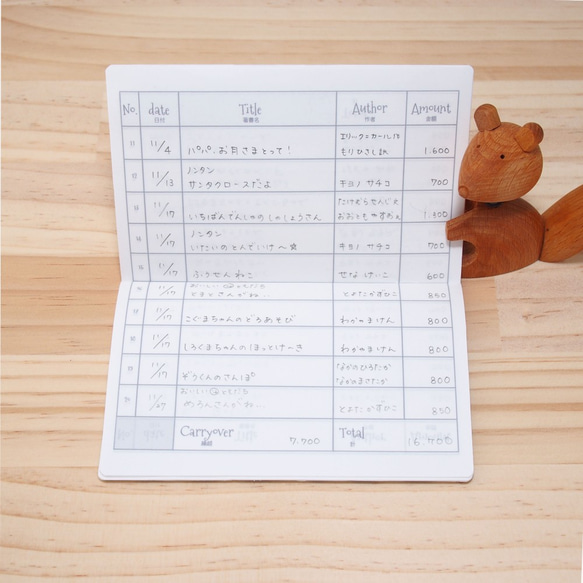 No. date Title Author Amount
日付 書籍名 作者 金額
11 11/4 パパ、お月さまとって! エリック=カール作 もりひさし訳 1.600
12 11/13 ノンタン サンタクロースだよ キヨノ サチコ 700
13 11/17 いちばんでんしゃのしゃしょうさん たけむらせんじ文 おおともやすお絵 1.300
14 11/17 ノンタン いたいのとんでいけ〜☆ キヨノ サチコ 700
15 11/17 ふうせんねこ せな けいこ 600
16 11/17 おいしいともだち とまとさんがね… とよたかずひこ 850
17 11/17 こぐまちゃんのどろあそび わかやまけん 800
18 11/17 しろくまちゃんのほっとけーき わかやまけん 800
19 11/17 ぞうくんのさんぽ なかのひろたか なかのまさたか 800
20 11/27 おいしいともだち めろんさんがね… とよたかずひこ 850
Carryover 7.700 Total 16.400
繰越 計